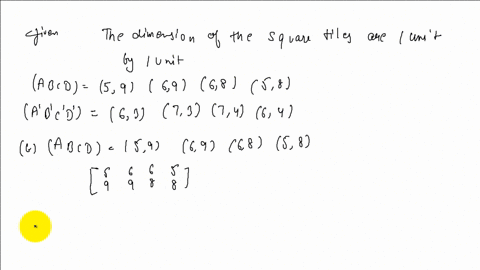 Given The dimension of the square tiles are 1 unit
by 1 unit
(ABCD) = (5,9) (6,9) (6,8) (5,8)
(A'B'C'D') = (6,3) (7,3) (7,4) (6,4)
(b) (ABCD) = (5,9) (6,9) (6,8) (5,8)
[5 6 6 5
9 9 8 8]